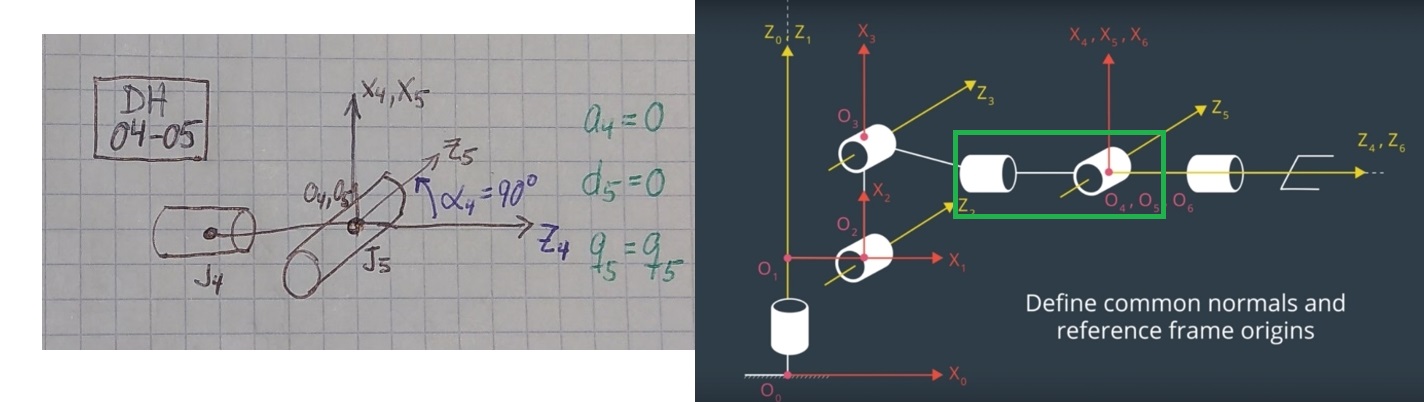 DH
04-05
X4, X5
Z5
O4, O5
α4 = 90°
Z4
J4
J5
a4 = 0
d5 = 0
q5 = q5
Z0 Z1
X3
X4 , X5 , X6
Z3
O3
Z5
Z4 , Z6
X2
Z2
O4 , O5 , O6
O2
O1
X1
Define common normals and
reference frame origins
X0
O0